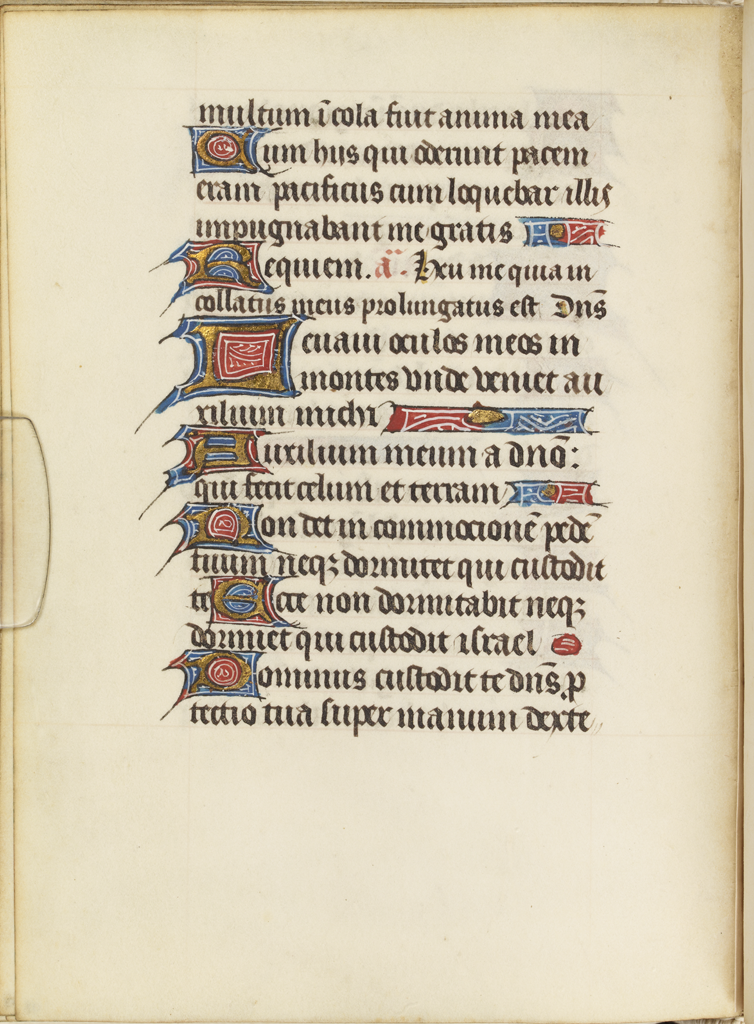 multum īcola fuit anima mea
Cum hiis qui oderunt pacem
eram pacificus cum loquebar illis
impugnabant me gratis
Requiem. a͞. Heu me quia in
collatus meus prolungatus est Dn̄s
Leuaui oculos meos in
montes vnde veniet au
xilium michi
Auxilium meum a dn̄o:
qui fecit celum et terram
Non det in commocionē pedē
tuum neqꝫ dormitet qui custodit
te Ecce non dormitabit neqꝫ
dormiet qui custodit israel
Dominus custodit te dn̄s ꝓ
tectio tua super manum dexte